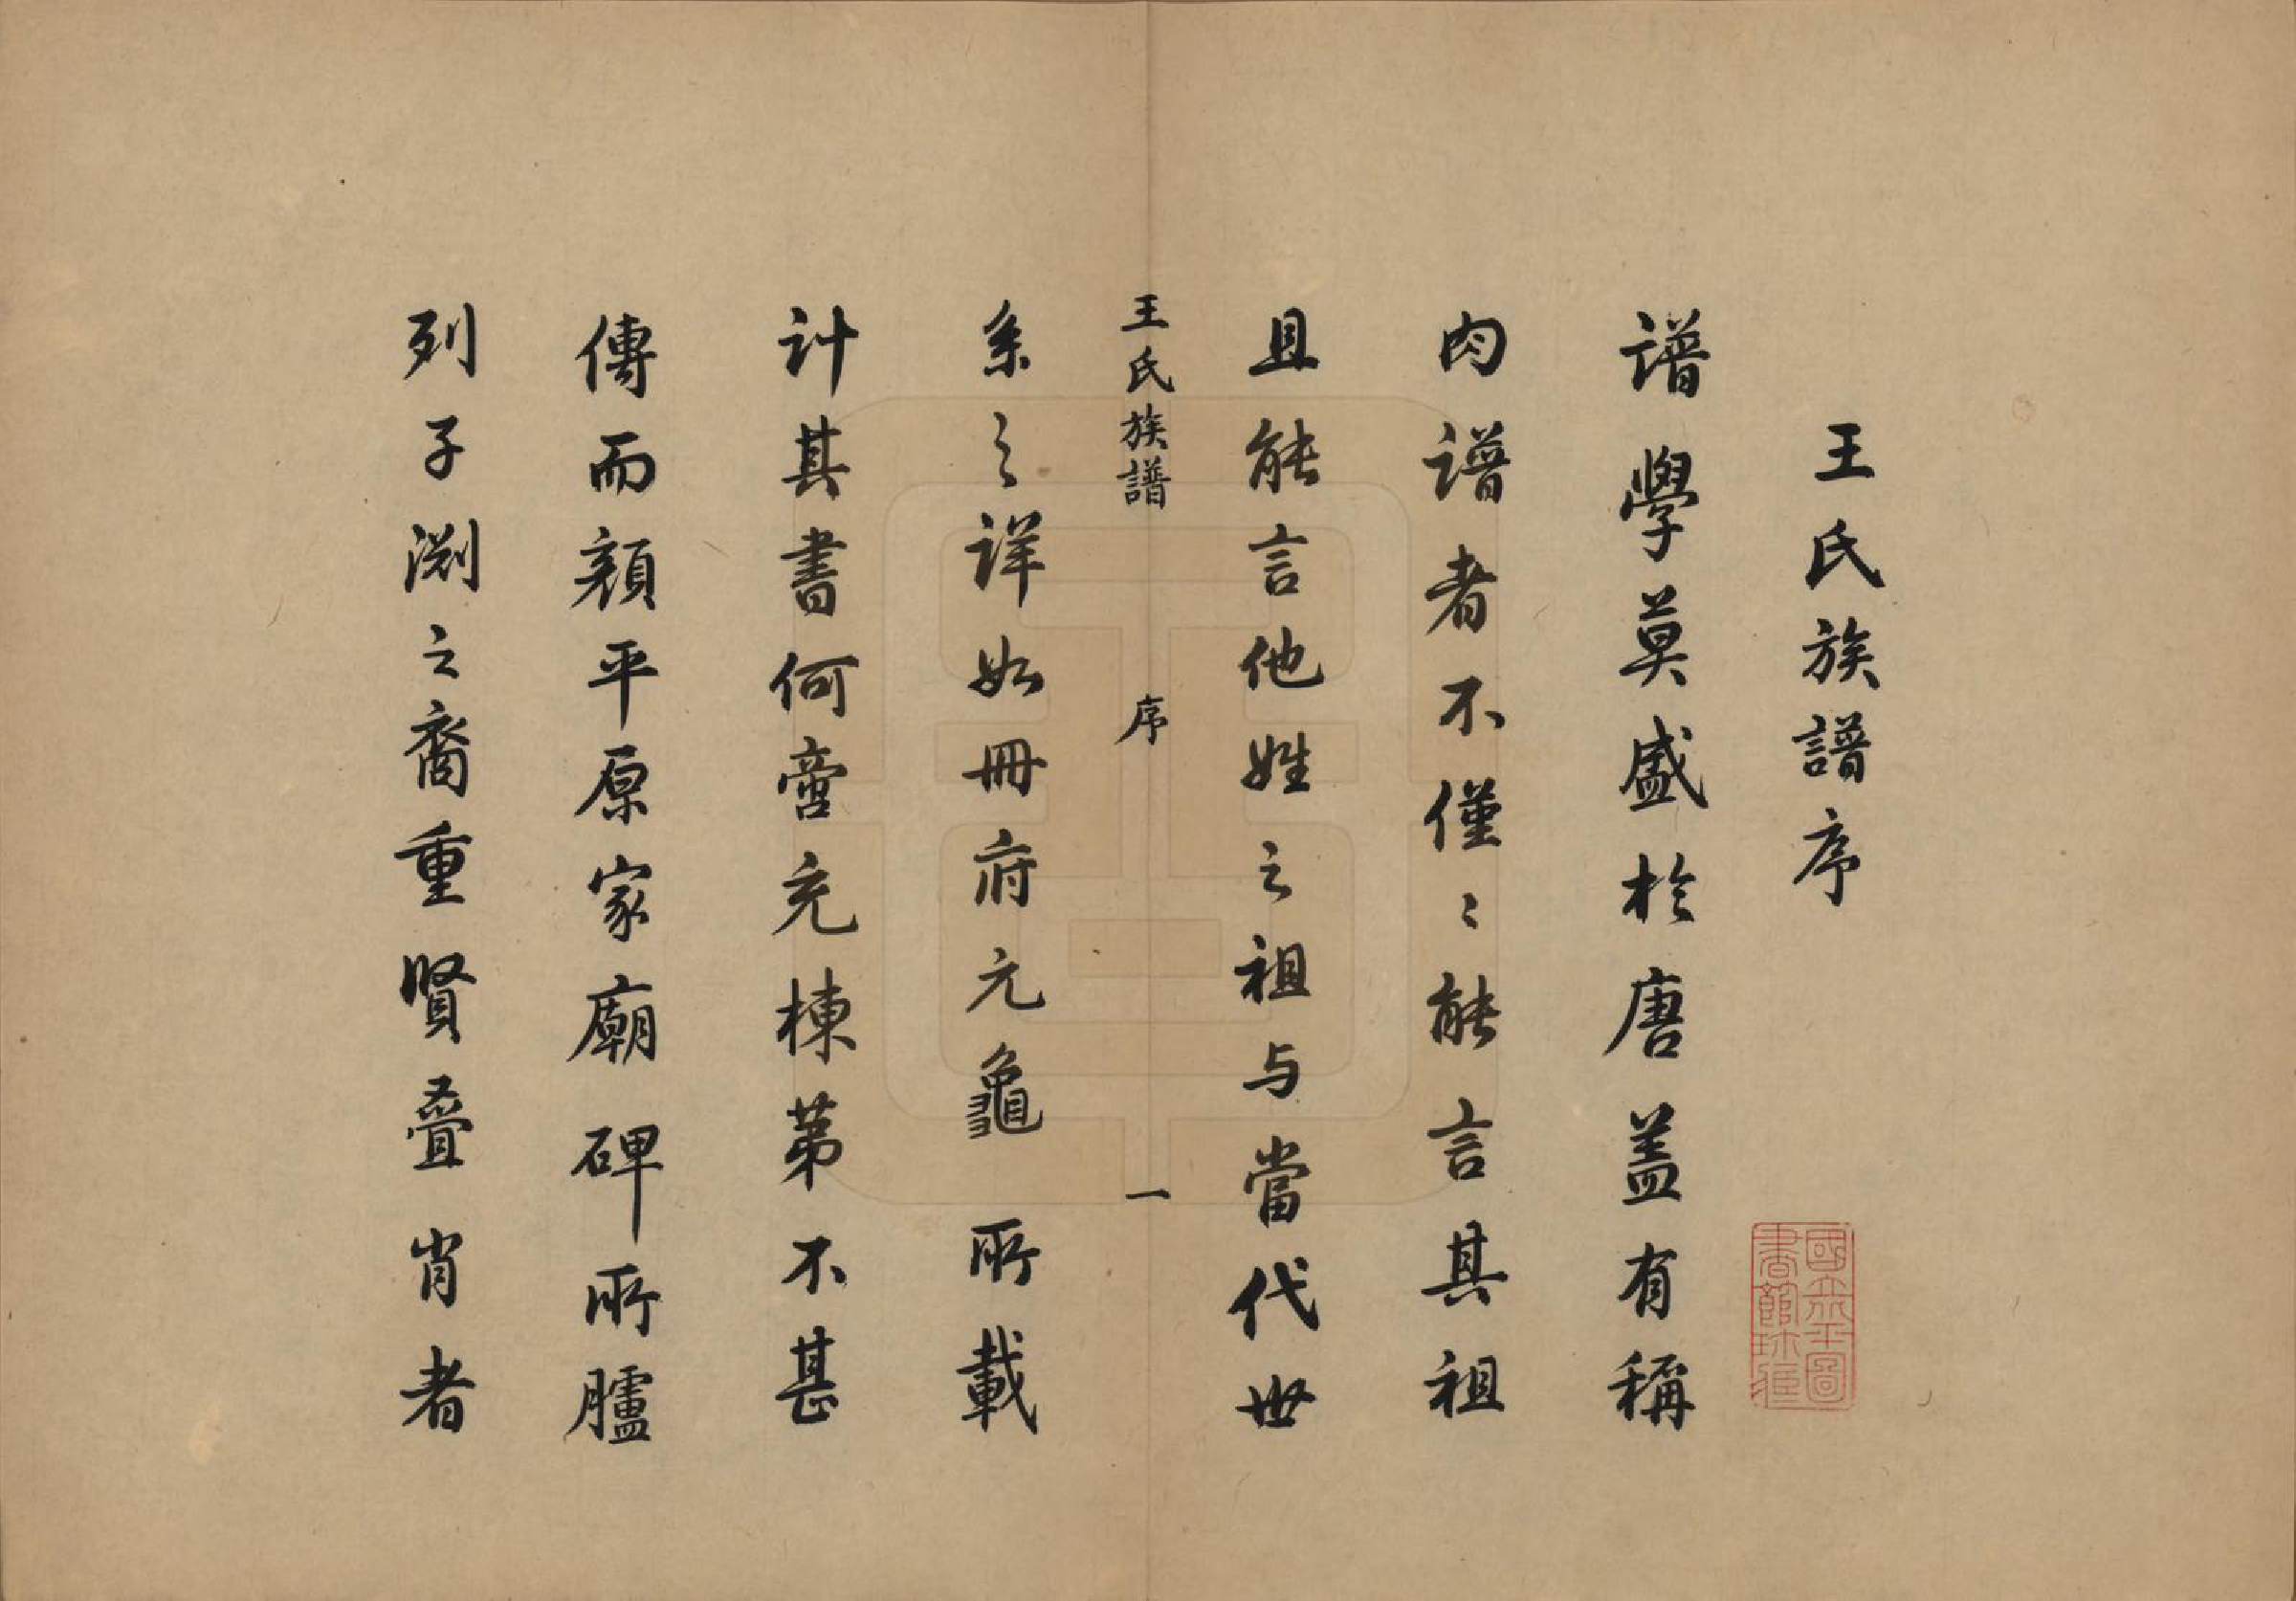 王氏族譜序
譜學莫盛於唐盖有稱
肉譜者不僅〻能言其祖
且能言他姓之祖与當代世
王氏族譜 序 一
系之詳如冊府元龜所載
計其書何啻充棟苐不甚
傳而顔平原家廟碑所臚
列子渕之裔重賢疊肖者
國立北平圖
書館珍藏